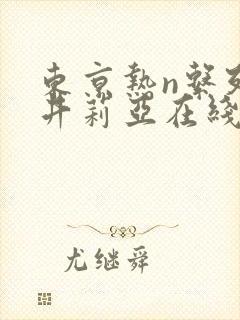 東京熱n繫
井莉亞在綫
尤继舜